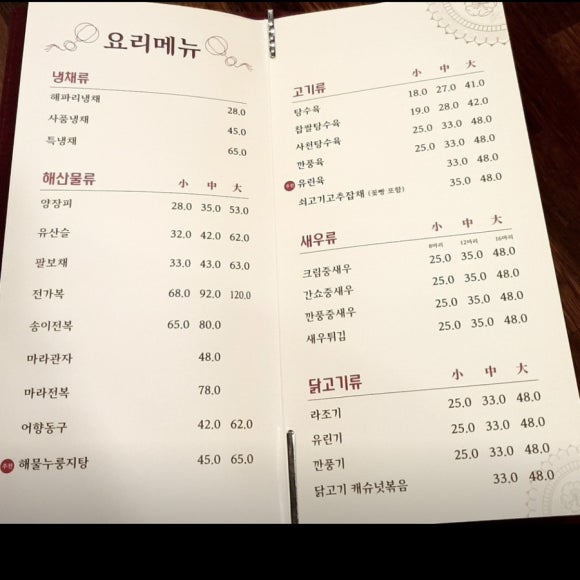 요리메뉴
냉채류
해파리냉채 28.0
사품냉채 45.0
특냉채 65.0
해산물류 小 中 大
양장피 28.0 35.0 53.0
유산슬 32.0 42.0 62.0
팔보채 33.0 43.0 63.0
전가복 68.0 92.0 120.0
송이전복 65.0 80.0
마라관자 48.0
마라전복 78.0
어향동구 42.0 62.0
추천 해물누룽지탕 45.0 65.0
고기류 小 中 大
탕수육 18.0 27.0 41.0
찹쌀탕수육 19.0 28.0 42.0
사천탕수육 25.0 33.0 48.0
깐풍육 25.0 33.0 48.0
추천 유린육 33.0 48.0
쇠고기고추잡채 (꽃빵 포함) 35.0 48.0
새우류 小 中 大
8마리 12마리 16마리
크림중새우 25.0 35.0 48.0
간쇼중새우 25.0 35.0 48.0
깐풍중새우 25.0 35.0 48.0
새우튀김 25.0 35.0 48.0
닭고기류 小 中 大
라조기 25.0 33.0 48.0
유린기 25.0 33.0 48.0
깐풍기 25.0 33.0 48.0
닭고기 캐슈넛볶음 33.0 48.0